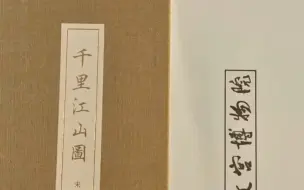 千里江山圖
宋
宮博物院